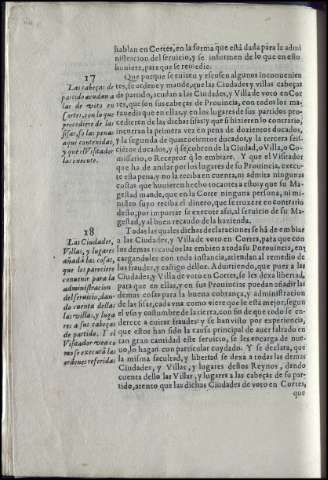 hablan en Cortes, en la forma que está dada para la admi
nistracion del seruicio, y se informen de lo que en esto
huuiere, para que se remedie.
17
Las cabeças de
partido acudan a
las de voto en
Cortes, con lo que
procediere de las
sisas, so las penas
aqui contenidas,
y que el Visitador
las execute.
Que porque se euiten y escusen algunos inconuenien
tes, se ordene y mande, que las Ciudades y villas cabeças
de partido, acudan a las Ciudades, y Villas de voto en Cor
tes, que son sus cabeças de Prouincia, con todos los ma
rauedis que en ellas, y en los lugares de sus partidos pro
cedieren de las dichas sisas y que si hizieren lo contrario,
incurran la primera vez en pena de dozientos ducados,
y la segunda de quatrocientos ducados, y la tercera seis
cientos ducados, y q se cobren de la Ciudad, o Villa, o Co
missario, o Receptor q lo embiare. Y que el Visitador
que ha de andar por los lugares de su Prouincia, execu
te esta pena, y no la reciba en cuenta, ni admita ningunas
costas que huuieren hecho tocantes a esto, y que su Ma
gestad mande, que en la Corte ninguna persona, ni mi
nistro suyo reciba el dinero, que se truxere en contrario
desto, por importar se execute assi, al seruicio de su Ma
gestad, y al buen recaudo de la hazienda.
18
Las Ciudades,
Villas, y lugares
añadã las cosas,
que les pareciere
conuenir para la
administracion
del seruicio, dan
do cuenta dellas
las villas, y luga
res a sus cabeças
de partido. Y el
Visitador vea co
mo se executã las
ordenes referidas
Todas las quales dichas declaraciones se há de embiar
a las Ciudades, y Villa de voto en Cortes, para que con
las demas tocantes las embien a toda su Prouincia, en
cargandoles con toda instancia, atiendan al remedio de
los fraudes, y castigo dellos. Aduirtiendo, que pues a las
Ciudades, y Villa de voto en Cortes, se les dexa libertad,
para que en ellas, y en sus Prouincias puedan añadir las
demas cosas para la buena cobrança, y administracion
de las sisas, cada vna como viere que le está mejor, segun
el vso y costumbre de la tierra, con fin de que todo se en
derece a euitar fraudes: y se han visto por experiencia,
que estos han sido la causa principal de auer faltado en
tan gran cantidad este seruicio, se les encarga de nue
uo, lo hagan con particular cuydado. Y se declara, que
la misma facultad, y libertad se dexa a todas las demas
Ciudades, y Villas, y lugares destos Reynos, dando
cuenta dello las Villas, y lugares a las cabeças de su par
tido, atento que las dichas Ciudades de voto en Cortes,
que